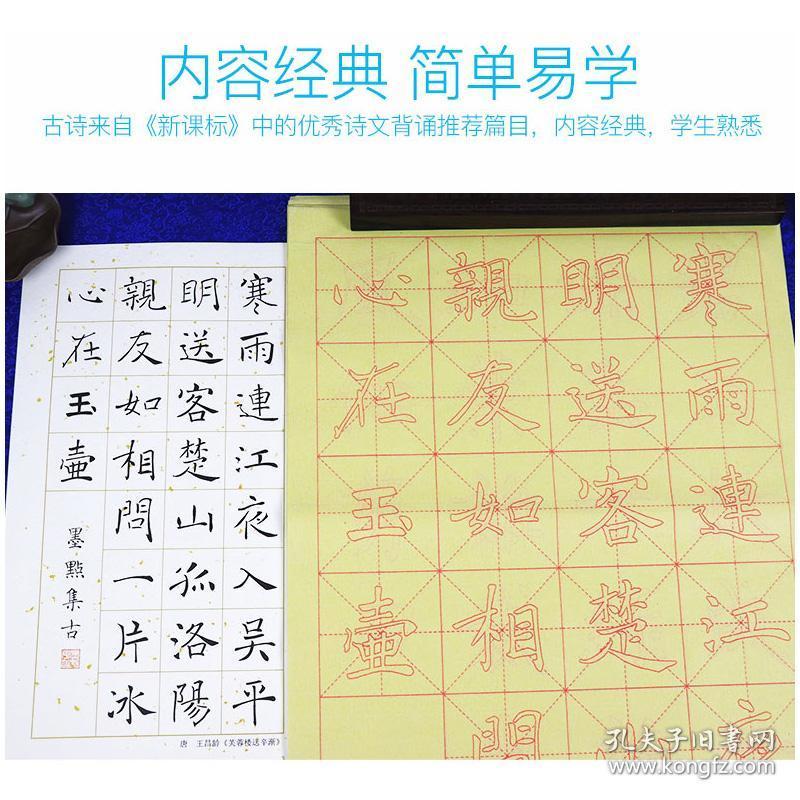 内容经典 简单易学
古诗来自《新课标》中的优秀诗文背诵推荐篇目，内容经典，学生熟悉
寒雨連江夜入吴平
明送客楚山孤洛陽
親友如相問一片冰
心在玉壷
墨點集古
唐 王昌龄《芙蓉楼送辛渐》
寒雨連江夜
明送客楚山
親友如相問
心在玉壷
孔夫子旧书网
www.kongfz.com